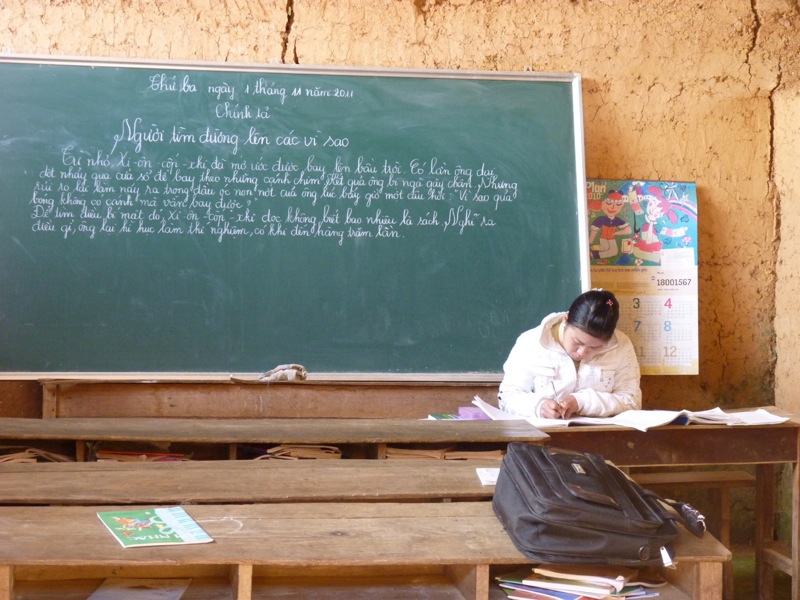 Thứ ba ngày 1 tháng 11 năm 2011
Chính tả
Người tìm đường lên các vì sao
Từ nhỏ, Xi-ôn-cốp-xki đã mơ ước được bay lên bầu trời. Có lần ông dại
dột nhảy qua cửa sổ để bay theo những cánh chim. Kết quả ông bị ngã gãy chân. Nhưng
rủi ro lại làm nảy ra trong đầu óc non nớt của ông lúc bấy giờ một câu hỏi: "Vì sao quả
bóng không có cánh mà vẫn bay được?"
Để tìm điều bí mật đó, Xi-ôn-cốp-xki đọc không biết bao nhiêu là sách. Nghĩ ra
điều gì, ông lại hì hục làm thí nghiệm, có khi đến hàng trăm lần.
Plan
2010
18001567
3 4
7 8
12